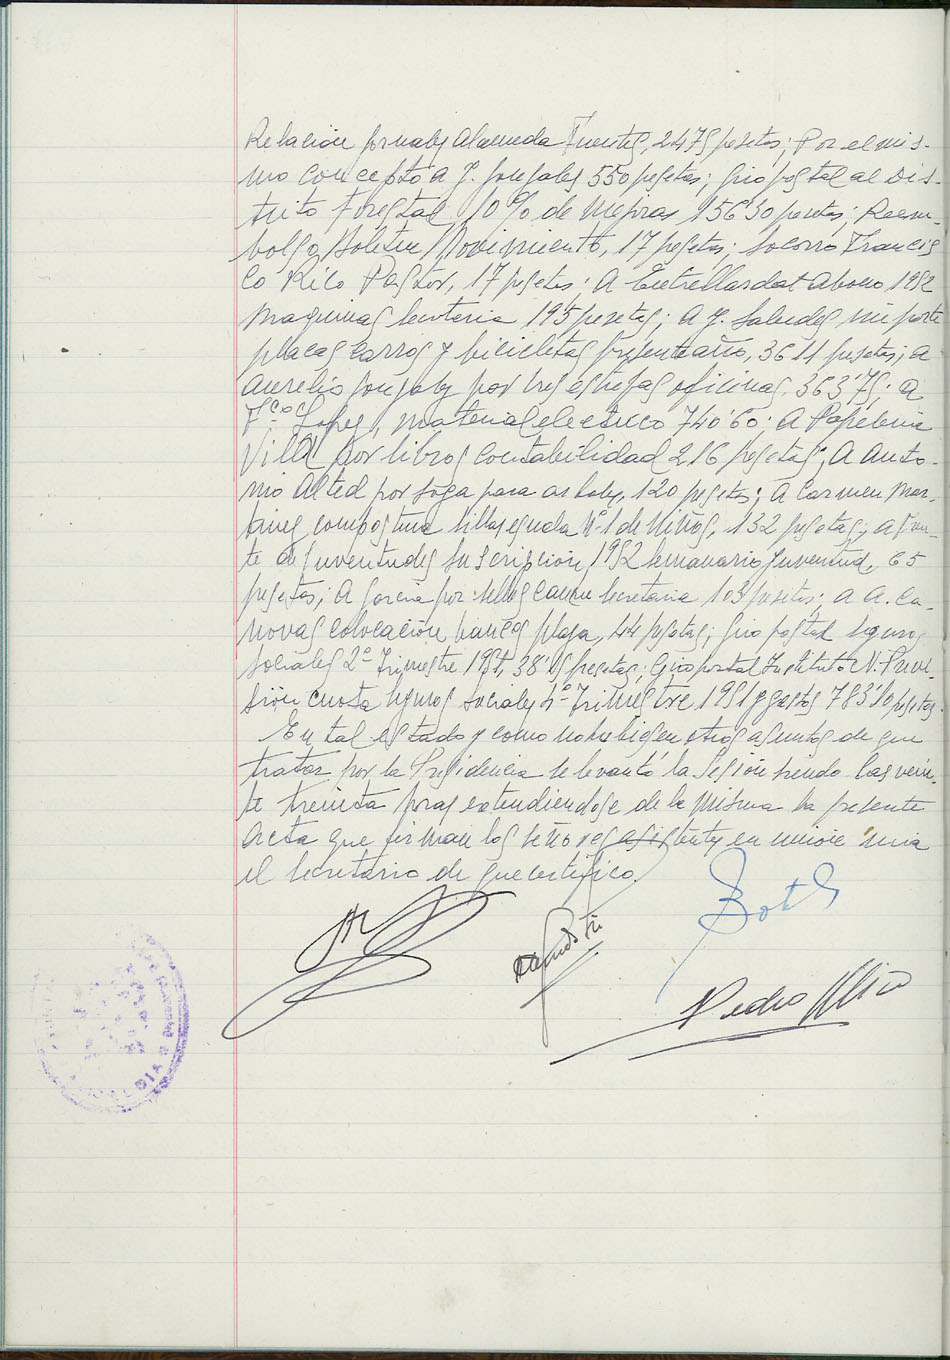 Relación jornales Alameda Fuentes, 2475 pesetas; Por el mis-
mo concepto a J. Gonzales 550 pesetas; Giro postal al Dis-
trito Forestal 10% de Mejoras 156'30 pesetas; Reem-
bolso Boletin Movimiento, 17 pesetas; Socorro Francis
co Rico Pastor, 17 pesetas; A abono 1952
maquinas Secretaria 195 pesetas; A J. Saludes importe
placas carros y bicicletas presente año, 3611 pesetas; a
Aurelio Gonzalez por tres oficinas, 363'75; a
Fco Lopez, material electrico 740'60; A Papeleria
Villa por libros contabilidad 216 pesetas; A Anto-
nio Alted por soga para arboles, 120 pesetas; A Carmen Mar-
tinez compostura sillas escuela Nº 1 de Niños, 132 pesetas; a Fren-
te de Juventudes Suscripcion 1952 semanario Juventud, 65
pesetas; A Garcia por sellos Secretaria 103 pesetas; a A. Ca-
novas colocación bancos plaza, 44 pesetas; Giro postal Seguros
Sociales 2º Trimestre 1951, 38'15 pesetas; Giro postal Instituto N. Previ-
sión cuota seguros sociales 4º Trimestre 1951 y gastos 783'10 pesetas.
En tal estado y como no hubiesen otros asuntos de que
tratar por la Presidencia se levantó la Sesión siendo las vein-
te treinta horas extendiendose de la misma la presente
acta que firman los señores asistentes en union mia
el Secretario de que certifico.
Botella
Pedro Rico
ALCALDIA